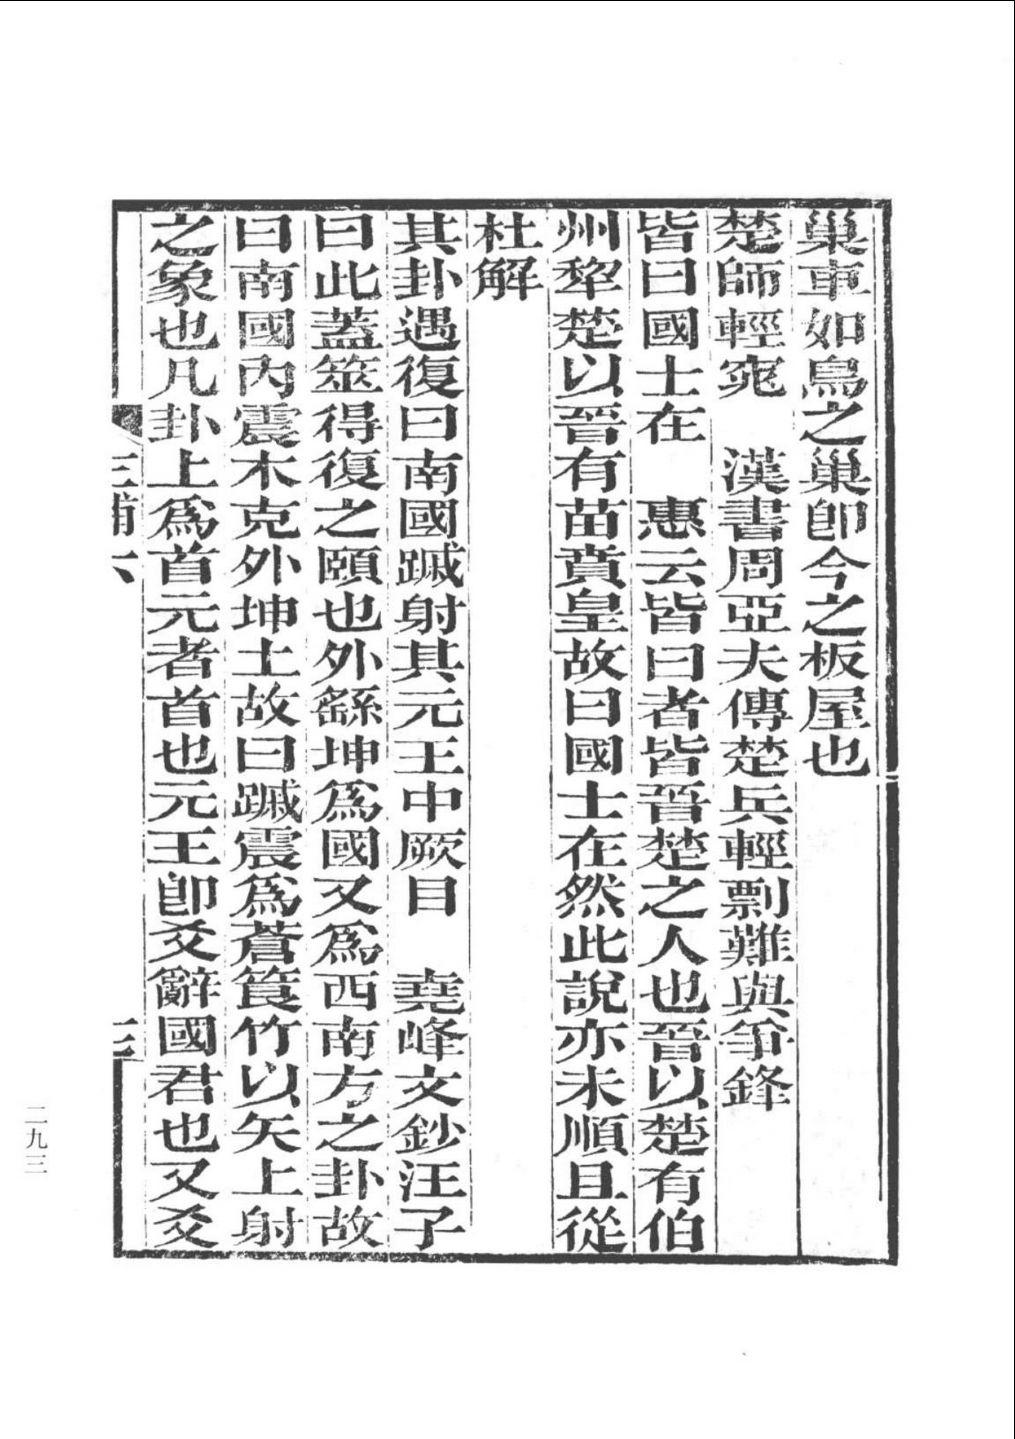 巢車如鳥之巢卽今之板屋也
楚師輕窕　漢書周亞夫傳楚兵輕剽難與爭鋒
皆曰國士在　惠云皆曰者皆晉楚之人也晉以楚有伯
州犂楚以晉有苗賁皇故曰國士在然此說亦未順且從
杜解
其卦遇復曰南國䠞射其元王中厥目　堯峰文鈔汪子
曰此蓋筮得復之頤也外繇坤爲國又爲西南方之卦故
曰南國內震木克外坤土故曰䠞震爲蒼筤竹以矢上射
之象也凡卦上爲首元者首也元王卽爻辭國君也又爻
三補六
二九三